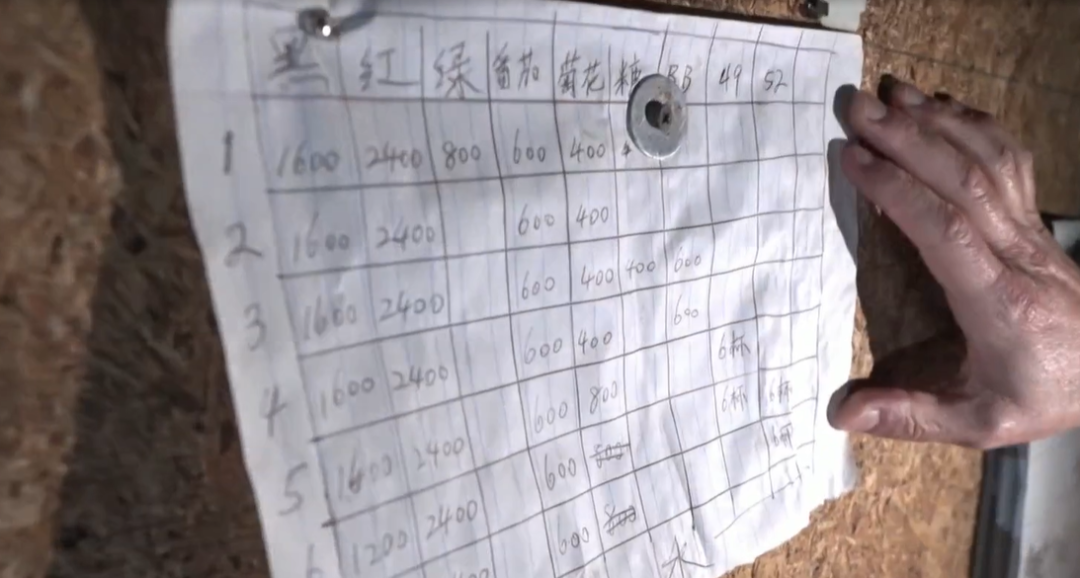 黑 红 绿 番茄 菊花 糖 BB 49 S2
1 1600 2400 800 600 400
2 1600 2400 600 400
3 1600 2400 600 400 400 600
4 1600 2400 600 400 600
5 1600 2400 600 800 6杯
6 1200 2400 600 800 6杯 6杯
600 800 6杯
水